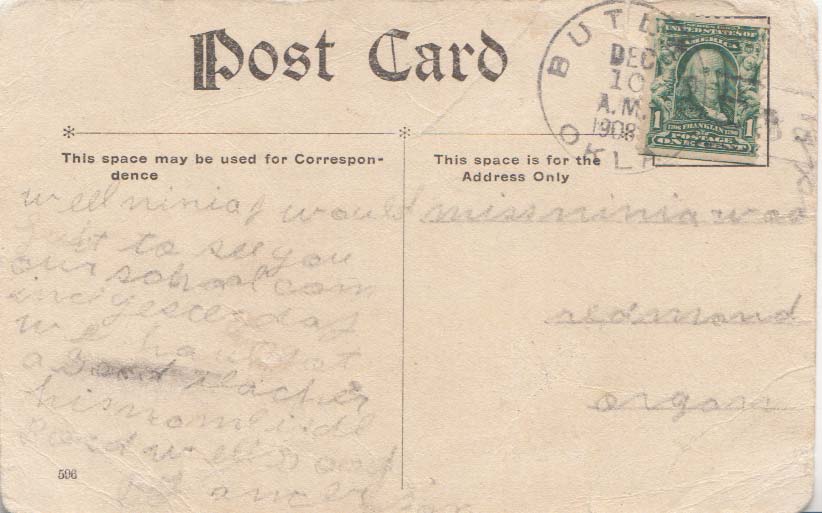 Post Card
BUTL
DEC
10
A.M.
1908
OKLA
UNITED STATES OF
AMERICA
1 1
1706 FRANKLIN 1790
POSTAGE
ONE CENT
This space may be used for Correspon-
dence
This space is for the
Address Only
well ninia I would
just to see you
our school com
inc yesterday
we have got
a Good teacher
his nom is
Good well Good
by ancer
miss ninia
redmond
orgon
596